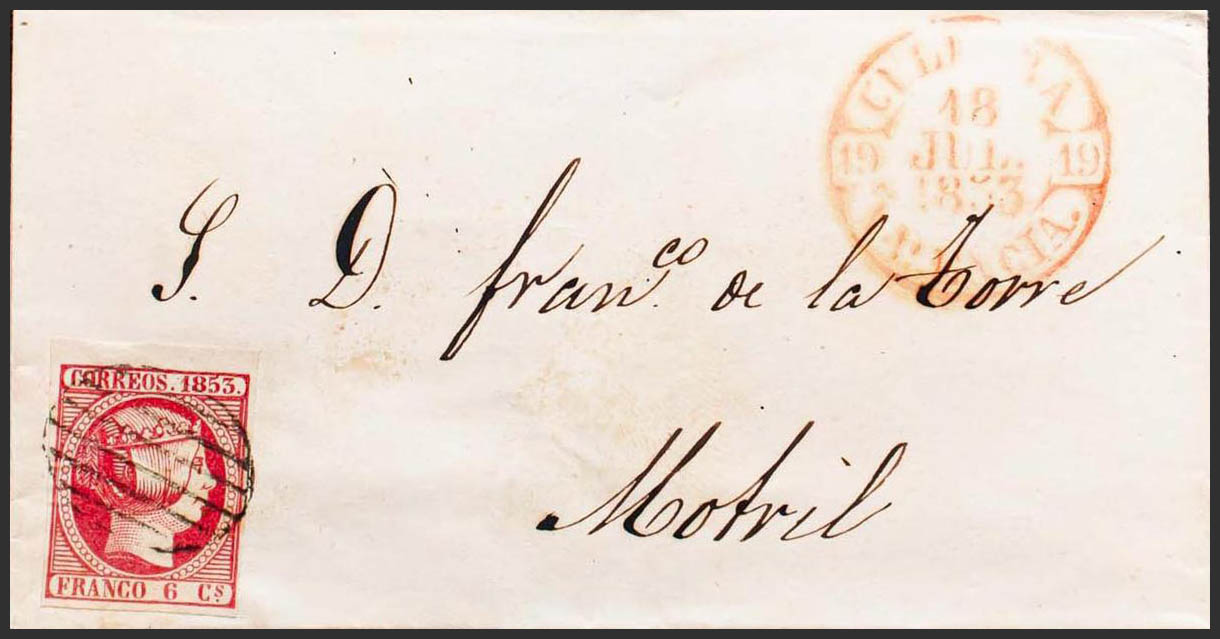 18
JUL.
1853
19
19
S. D. fran.co de la Torre
Motril
CORREOS. 1853.
FRANCO 6 Cs.